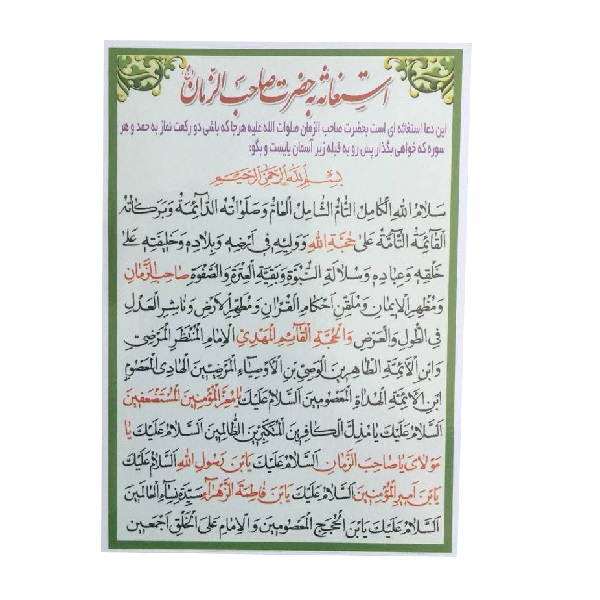 استغاثه به حضرت صاحب الزمان
این دعا استغاثه ای است بحضرت صاحب الزمان صلوات الله علیه هرجا که باشی دو رکعت نماز به حمد و هر
سوره که خواهی بگذار پس رو به قبله زیر آسمان بایست و بگو:
بِسْمِ اللهِ الرَّحْمٰنِ الرَّحیمِ
سَلامُ اللهِ الْکامِلُ التّامُّ الشّامِلُ الْعامُّ وَ صَلَواتُهُ الدّائِمَةُ وَ بَرَکاتُهُ
الْقائِمَةُ التّامَّةُ عَلیٰ حُجَّةِ اللهِ وَ وَلِیِّهِ فی اَرْضِهِ وَ بِلادِهِ وَ خَلیفَتِهِ عَلیٰ
خَلْقِهِ وَ عِبادِهِ وَ سُلالَةِ النُّبُوَّةِ وَ بَقِیَّةِ الْعِتْرَةِ وَ الصَّفْوَةِ صاحِبِ الزَّمانِ
وَ مُظْهِرِ الْایمانِ وَ مُلَقِّنِ اَحْکامِ الْقُرْآنِ وَ مُطَهِّرِ الْاَرْضِ وَ ناشِرِ الْعَدْلِ
فِی الطُّولِ وَ الْعَرْضِ وَ الْحُجَّةِ الْقائِمِ الْمَهْدِیِّ الْاِمامِ الْمُنْتَظَرِ الْمَرْضِیِّ
وَ ابْنِ الْاَئِمَّةِ الطّاهِرینَ الْوَصِیِّ بْنِ الْاَوْصِیاءِ الْمَرْضِیّینَ الْهادِی الْمَعْصُومِ
ابْنِ الْاَئِمَّةِ الْهُداةِ الْمَعْصُومینَ اَلسَّلامُ عَلَیْکَ یا مُعِزَّ الْمُؤْمِنینَ الْمُسْتَضْعَفینَ
اَلسَّلامُ عَلَیْکَ یا مُذِلَّ الْکافِرینَ الْمُتَکَبِّرینَ الظّالِمینَ اَلسَّلامُ عَلَیْکَ یا
مَوْلایَ یا صاحِبَ الزَّمانِ اَلسَّلامُ عَلَیْکَ یَا بْنَ رَسُولِ اللهِ اَلسَّلامُ عَلَیْکَ
یَا بْنَ اَمیرِ الْمُؤْمِنینَ اَلسَّلامُ عَلَیْکَ یَا بْنَ فاطِمَةَ الزَّهْراءِ سَیِّدَةِ نِساءِ الْعالَمینَ
اَلسَّلامُ عَلَیْکَ یَا بْنَ الْحُجَجِ الْمَعْصُومینَ وَ الْاِمامِ عَلَی الْخَلْقِ اَجْمَعینَ